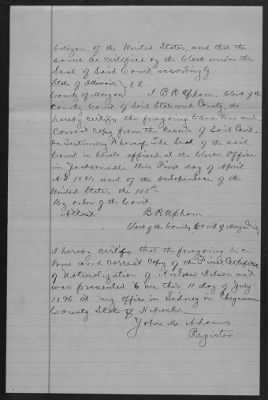 Citizen of the United States and that the
same be certified by the Clerk under the
Seal of Said Court, accordingly.
State of Illinois } S S
County of Morgan } I B R Upham Clerk of the
County Court of Said State and County, do
hereby certify the foregoing to be a true and
Correct copy from the Records of Said Court.
In Testimony Whereof, The Seal of the said
Court is hereto affixed at the Clerks Office
in Jacksonville this First day of April
A.D. 1881. and of the Independence of the
United States, the 105th
By order of the Court
Attest B R Upham
Clerk of the County Court of Morgan
I hereby certify that the foregoing is a
true and correct copy of the Final Certificate
of Naturalization of Nelson and
was presented to me this 11 day of July
1896 at my office in Sidney in Cheyenne
County State of Nebraska
John M. Adams
Register